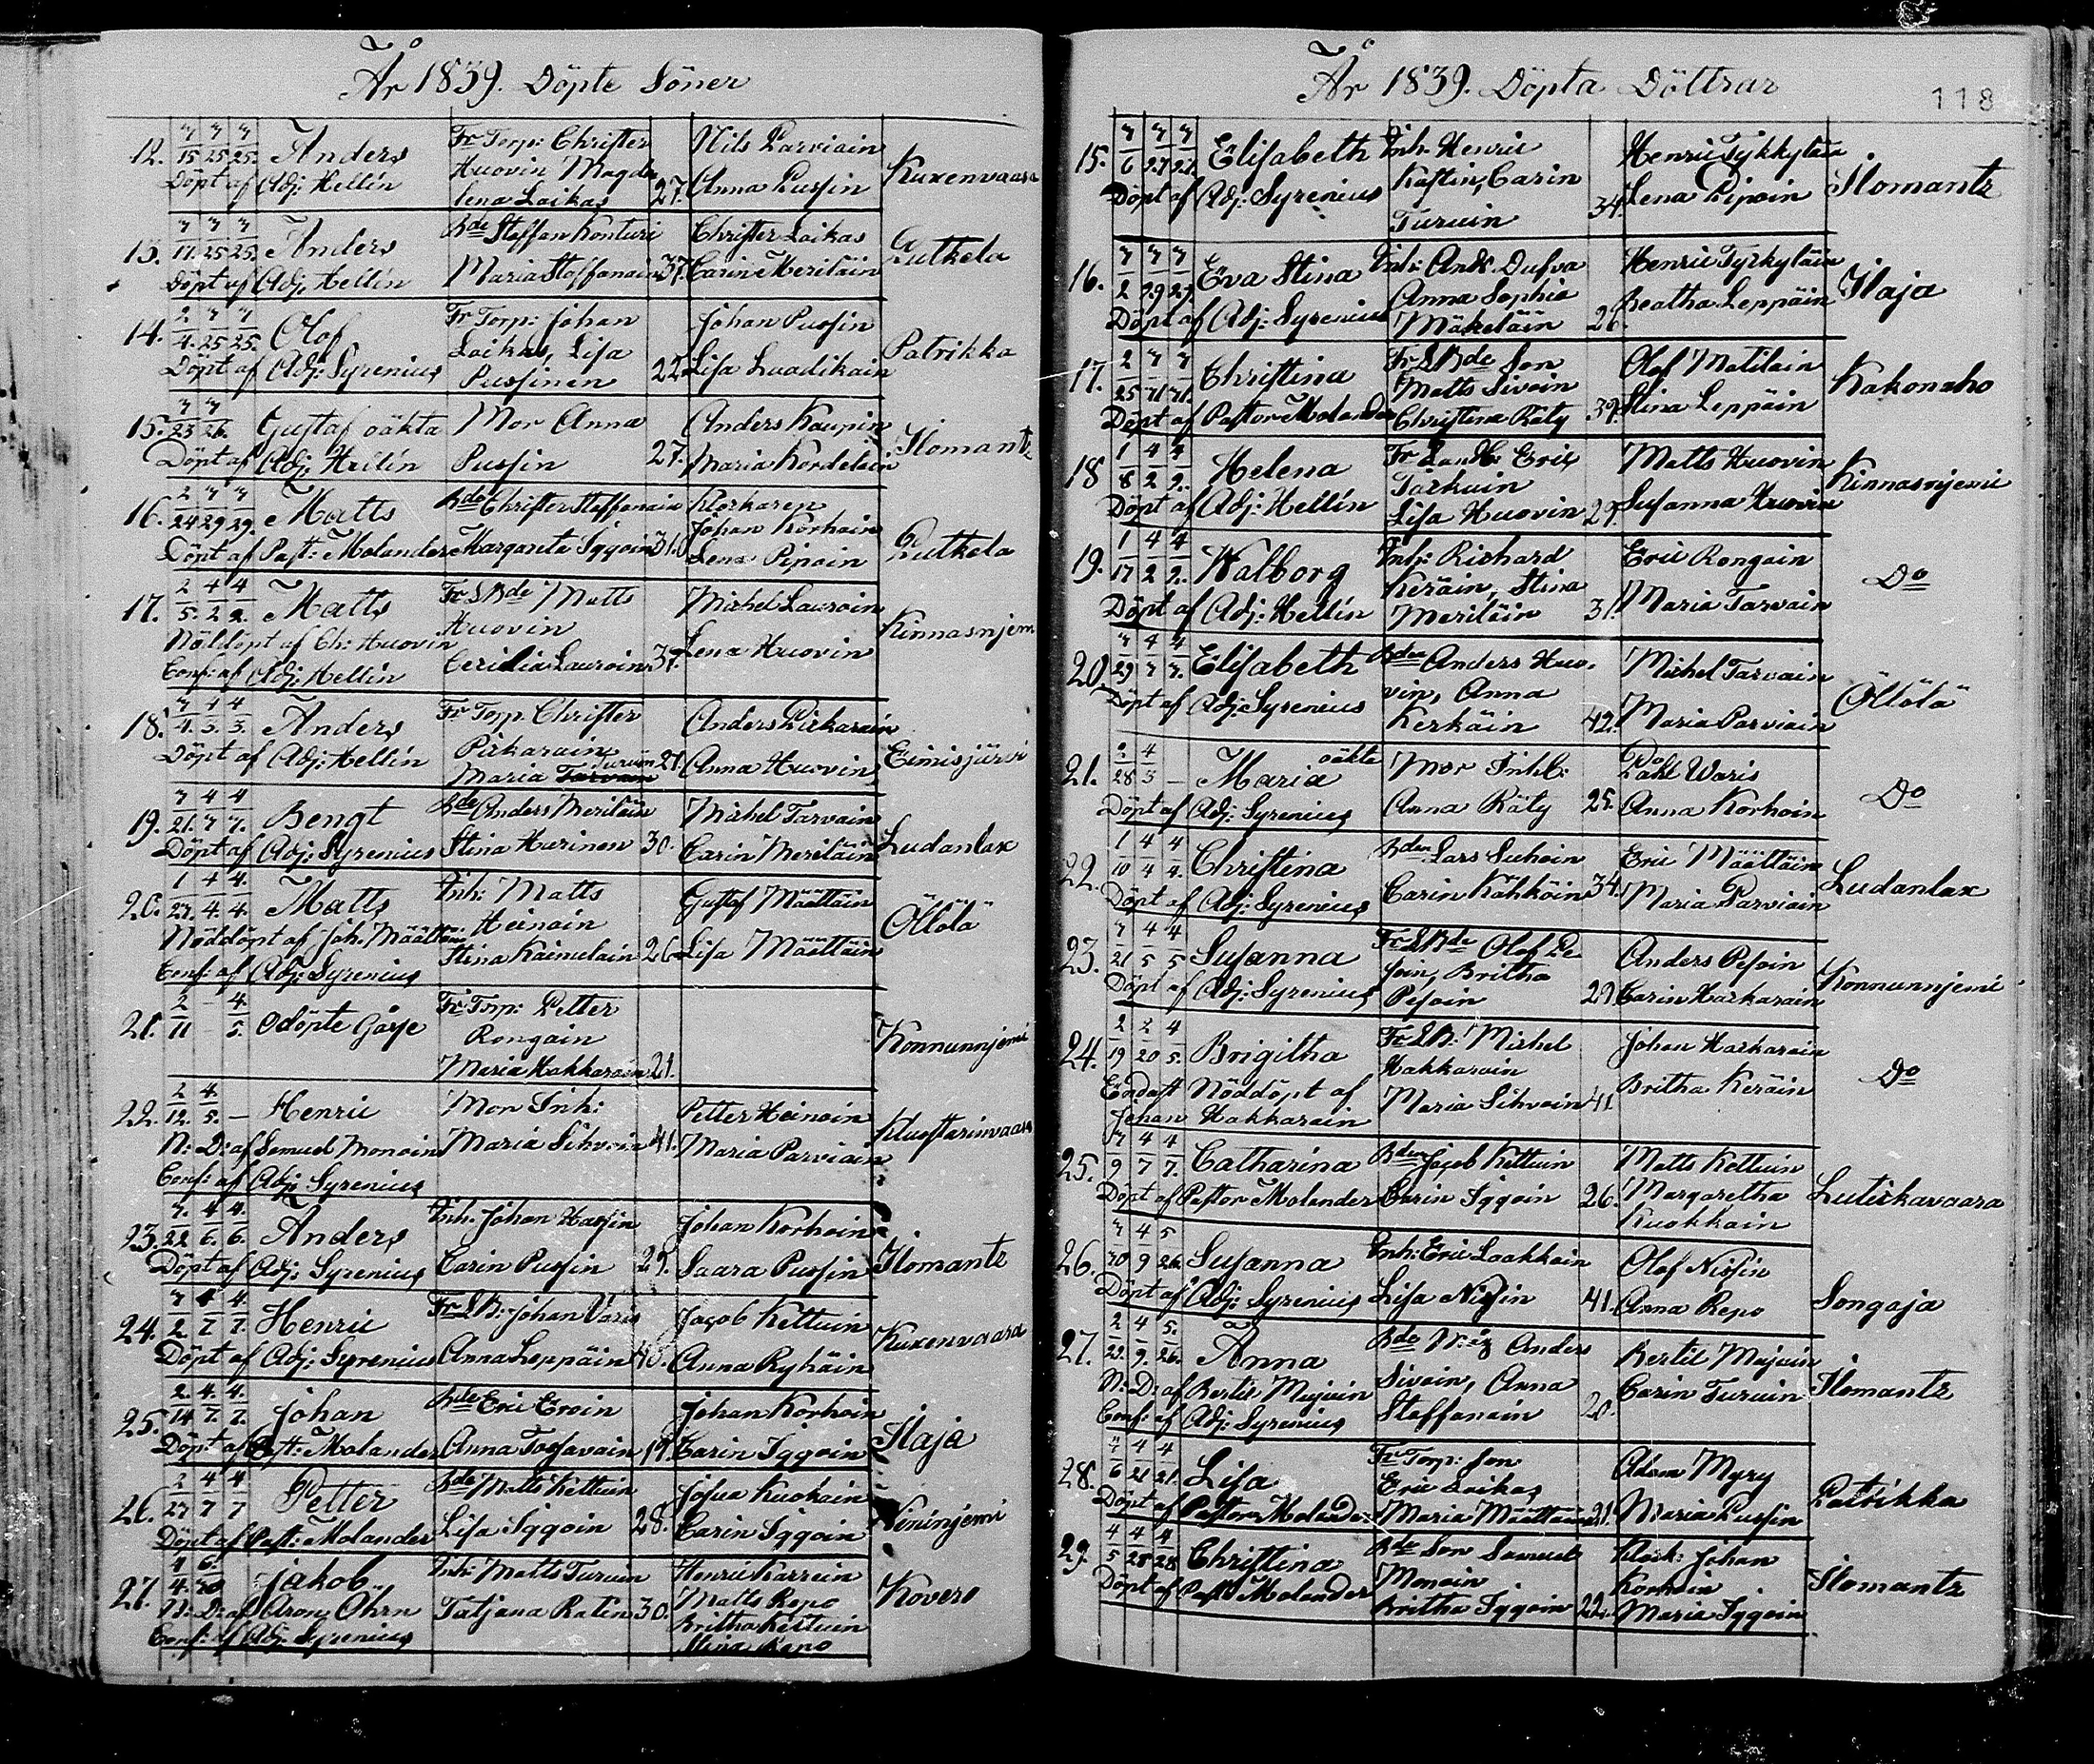 År 1839. Döpte Söner
12. 3/15 3/25 3/25. Anders
Döpt af Adj: Hellin
Fr Torp: Christer
Huovin Magda
lena Laikas 27.
Nils Parviain
Anna Pussin
Kuxenvaara
13. 3/17. 3/25 3/25. Anders
Döpt af Adj. Hellin
Bde Staffan Konturi
Maria Staffanain 37.
Christer Laikas
Carin Meriläin
Putkela
14. 2/4. 3/25 3/25. Olof
Döpt af Adj: Syrenius
Fr Torp: Johan
Laikas, Lisa
Pussinen 22.
Johan Pussin
Lisa Luadikain
Patrikka
15. 3/23 3/26. Gustaf oäkta
Döpt af Adj. Hellin
Mor Anna
Pussin 27.
Anders Kaupin
Maria Kordelain
Ilomants
16. 2/24 3/29 3/29. Matts
Döpt af Past: Molander
Bde Christer Staffanain
Margareta Iggoin 31.
Klockaren
Johan Korhoin
Lena Pipoin
Putkela
17. 2/5. 4/2 4/2. Matts
Nöddöpt af Ch: Huovin
Conf: af Adj: Hellin
Fr S Bde Matts
Huovin
Cecilia Lauroin 37.
Michel Lauroin
Lena Huovin
Kinnasnjemi
18. 3/4. 4/3. 4/3. Anders
Döpt af Adj: Hellin
Fr Torp. Christer
Pirkarain
Maria Turuin 21.
Anders Pirkarain
Anna Huovin
Eimisjärvi
19. 3/21. 4/7 4/7. Bengt
Döpt af Adj: Syrenius
Bde Anders Meriläin
Stina Hurinen 30.
Michel Tarvain
Carin Meriläin
Ludanlax
20. 1/27. 4/4. 4/4. Matts
Nöddöpt af Joh. Määttäin
Conf: af Adj: Syrenius
Inh: Matts
Heinoin
Stina Kaimulain 26
Gustaf Määttäin
Lisa Määttäin
Öllölä
21. 2/11 – 4/5. Odöpte Gåsse
Fr Torp: Petter
Rongain
Maria Hakkarain 21.
Konnunnjemi
22. 2/12. 4/5. – Henric
N: D: af Samuel Monoin
Conf: af Adj: Syrenius
Mor Inh:
Maria Sihvoin 41.
Petter Heinoin
Maria Parviain
Klustarinvaara
23. 3/22 4/6. 4/6. Anders
Döpt af Adj: Syrenius
Inh. Johan Hassin
Carin Pussin 29.
Johan Korhoin
Saara Pussin
Ilomants
24. 3/2. 4/7 4/7. Henric
Döpt af Adj: Syrenius
Fr S B: Johan Varis
Anna Leppäin 40.
Jacob Kettuin
Anna Ryhäin
Kuxenvaara
25. 2/14 4/7. 4/7. Johan
Döpt af Past: Molander
Bde Eric Eroin
Anna Tossavain 19.
Johan Korhoin
Carin Iggoin
Ilaja
26. 2/27 4/7 4/7 Petter
Döpt af Past: Molander
Bde Matts Kettuin
Lisa Iggoin 28.
Josua Kuokain
Carin Iggoin
Nininjemi
27. 4/4. 6/30 Jakob
N: D: af Aron Öhrn
Conf: af Adj. Syrenius
Inh: Matts Turuin
Tatjana Ratin 30.
Henric Karrein
Matts Repo
Britha Kettuin
Stina Repo
Kovero
År 1839. Döpta Döttrar
118
15. 3/6 3/27 3/27. Elisabeth
Döpt af Adj: Syrenius
Inh. Henric
Kastin, Carin
Turuin 34.
Henric Tykkyläin
Lena Pipoin
Ilomants
16. 3/2 3/29 3/29 Eva Stina
Döpt af Adj: Syrenius
Inh: Ands Dufva
Anna Sophia
Mäkeläin 26.
Henric Tyrkyläin
Beatha Leppäin
Ilaja
17. 2/25 3/31 3/31. Christina
Döpt af Pastor Molander
Fr S Bde Son
Matts Sivoin
Christina Räty 39.
Olof Matilain
Stina Leppäin
Kakonaho
18 1/8 4/2 4/2. Helena
Döpt af Adj: Hellin
Eric
Tarkuin
Lisa Huovin 29.
Matts Huovin
Susanna Huovin
Kinnasnjemi
19. 1/17 4/2 4/2. Walborg
Döpt af Adj: Hellin
Inh: Richard
Keräin, Stina
Meriläin 31.
Eric Rongain
Maria Tarvain
Do
20. 3/29 4/7 4/7. Elisabeth
Döpt af Adj: Syrenius
Bden Anders Huo-
vin, Anna
Kerkäin 42.
Michel Tarvain
Maria Parviain
Öllölä
21. 2/28 4/3 – Maria oäkta
Döpt af Adj: Syrenius
Mor Inh:
Anna Räty 25.
Påhl Waris
Anna Korhoin
Do
22. 1/10 4/4 4/4. Christina
Döpt af Adj: Syrenius
Bden Lars Suhoin
Carin Kähköin 34.
Eric Määttäin
Maria Parviain
Ludanlax
23. 3/21 4/5 4/5 Susanna
Döpt af Adj: Syrenius
Fr S Bde Olof Pe
soin, Britha
Pesoin 29.
Anders Pesoin
Carin Harkarain
Konnunnjemi
24. 2/19 2/20 4/5. Brigitha
Endast Nöddöpt af
Johan Hakkarain
Fr S B: Michel
Hakkarain
Maria Sihvoin 41
Johan Harkarain
Britha Keräin
Do
25. 3/9 4/7 4/7. Catharina
Döpt af Pastor Molander
Bden Jacob Kettuin
Carin Iggoin 26.
Matts Kettuin
Margaretha
Kuokkain
Lutiskavaara
26. 3/30 4/9 5/26. Susanna
Döpt af Adj: Syrenius
Inh: Eric Laakkoin
Lisa Nissin 41.
Olof Nissin
Anna Repo
Songaja
27. 2/22. 4/9. 5/26. Anna
N: D: af Bertil Mujuin
Conf: af Adj: Syrenius
Bde Anders
Sivoin, Anna
Staffanain 20.
Bertil Mujuin
Carin Turuin
Ilomants
28. 4/6 4/21 4/21. Lisa
Döpt af Pastor Molander
Fr Torp: Son
Eric Laikas
Maria Määttäin 21.
Adam Myry
Maria Pussin
Patrikka
29. 4/5 4/28 4/28 Christina
Döpt af Past Molander
Bde Son Samuel
Monoin
Britha Iggoin 22.
Klock: Johan
Korhoin
Maria Iggoin
Ilomants